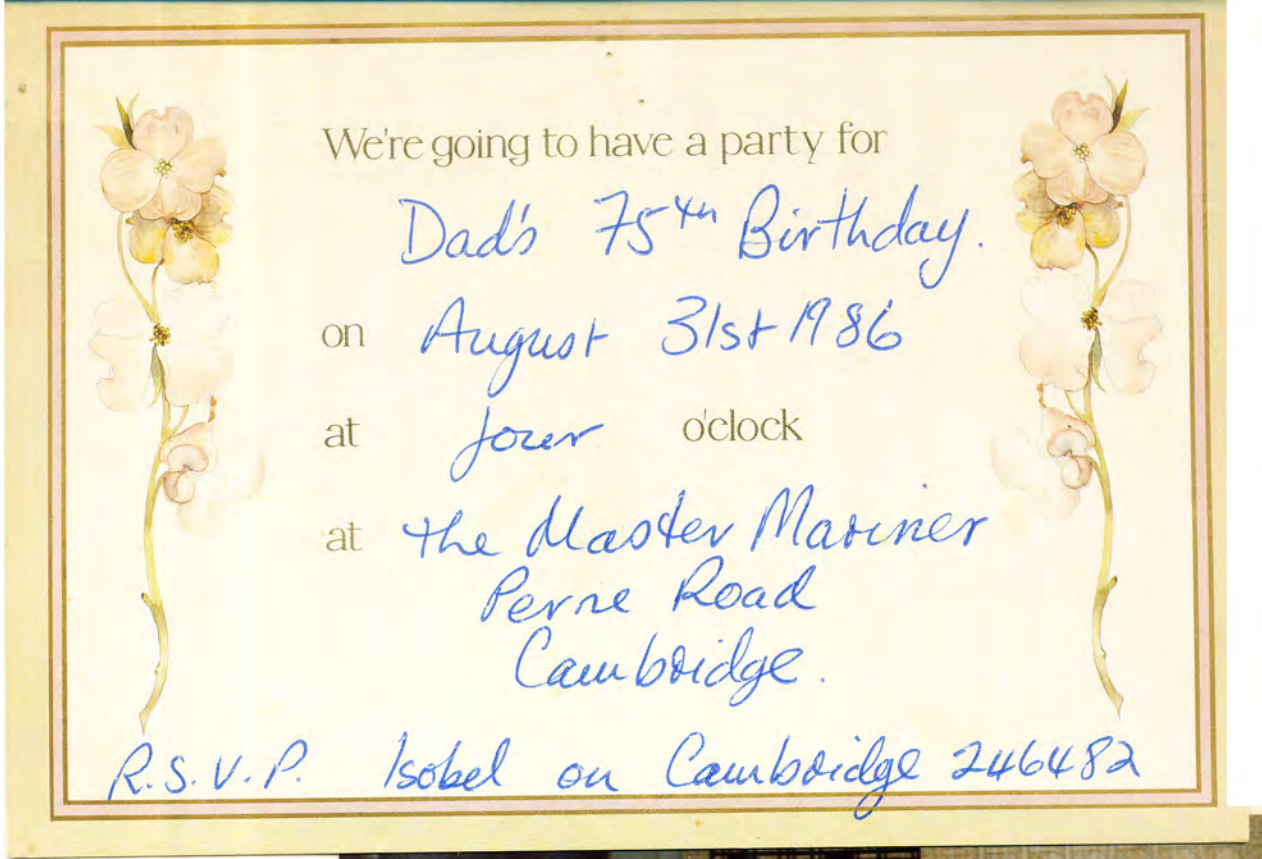 We're going to have a party for
Dad's 75th Birthday.
on August 31st 1986
at four o'clock
at the Master Mariner
Perne Road
Cambridge.
R.S.V.P. Isobel on Cambridge 246482